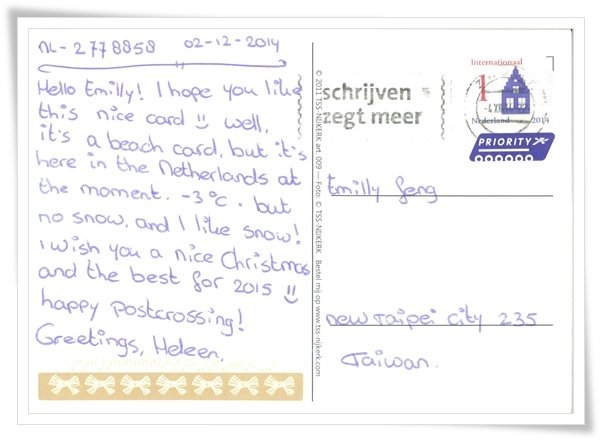 NL-2778858 02-12-2014
Hello Emilly! I hope you like
this nice card well,
it's a beach card, but it's
here in the Netherlands at
the moment. -3°C. but
no snow. and I like snow!
I wish you a nice Christmas
and the best for 2015
happy Postcrossing!
Greetings, Heleen.
© 2011 TSS-NIJKERK art. 009 — Foto: © TSS-NIJKERK Bestel mij op www.tss-nijkerk.com
schrijven
zegt meer
Internationaal
1
Nederland 2013
PRIORITY
Emilly Geng
New Taipei City 235
Taiwan.